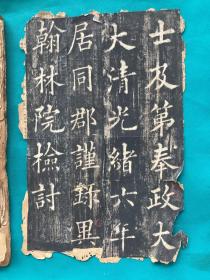 士及第奉政大
大清光緒六年
居同郡謹錄畢
翰林院檢討